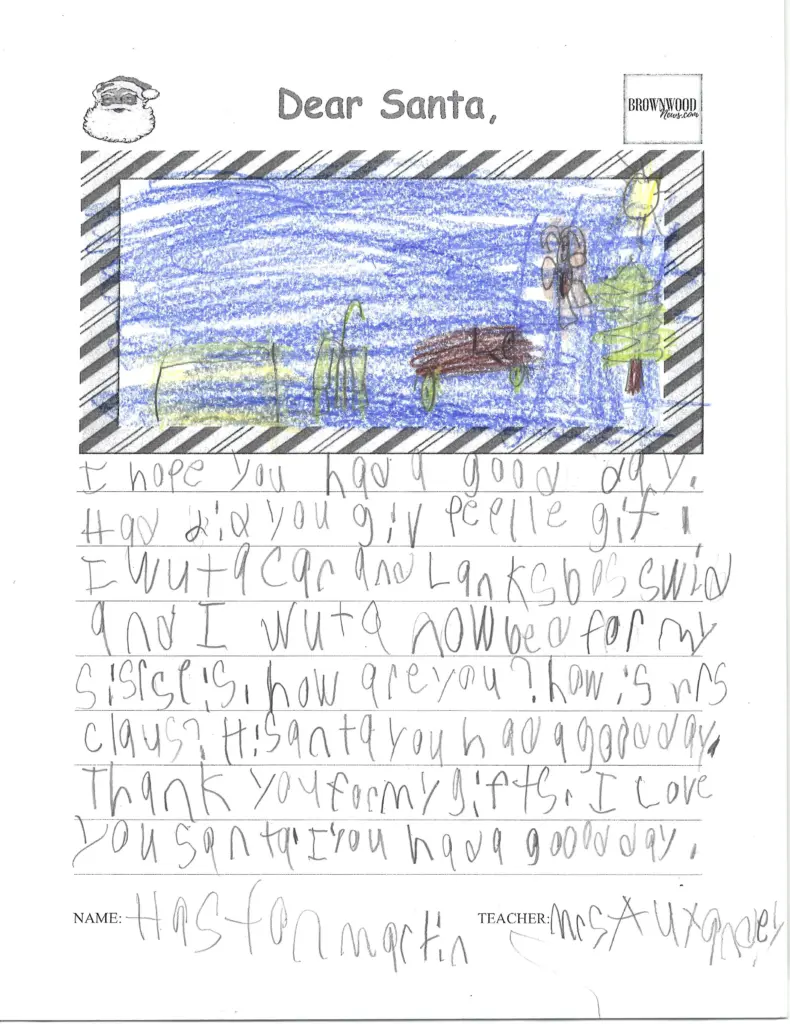 Dear Santa,
BROWNWOOD
News.com
I hope you had a good day.
Had did you giv peelle gif
I wuta car and Lanksbos swid
and I wuta now bed for my
sisrseis. how are you? how is mrs
claus? Hi santa you had a goood day.
Thank you formy gifts. I Love
you santa I you had a goood day.
NAME: Hastonmartin
TEACHER: Mrs Auxander